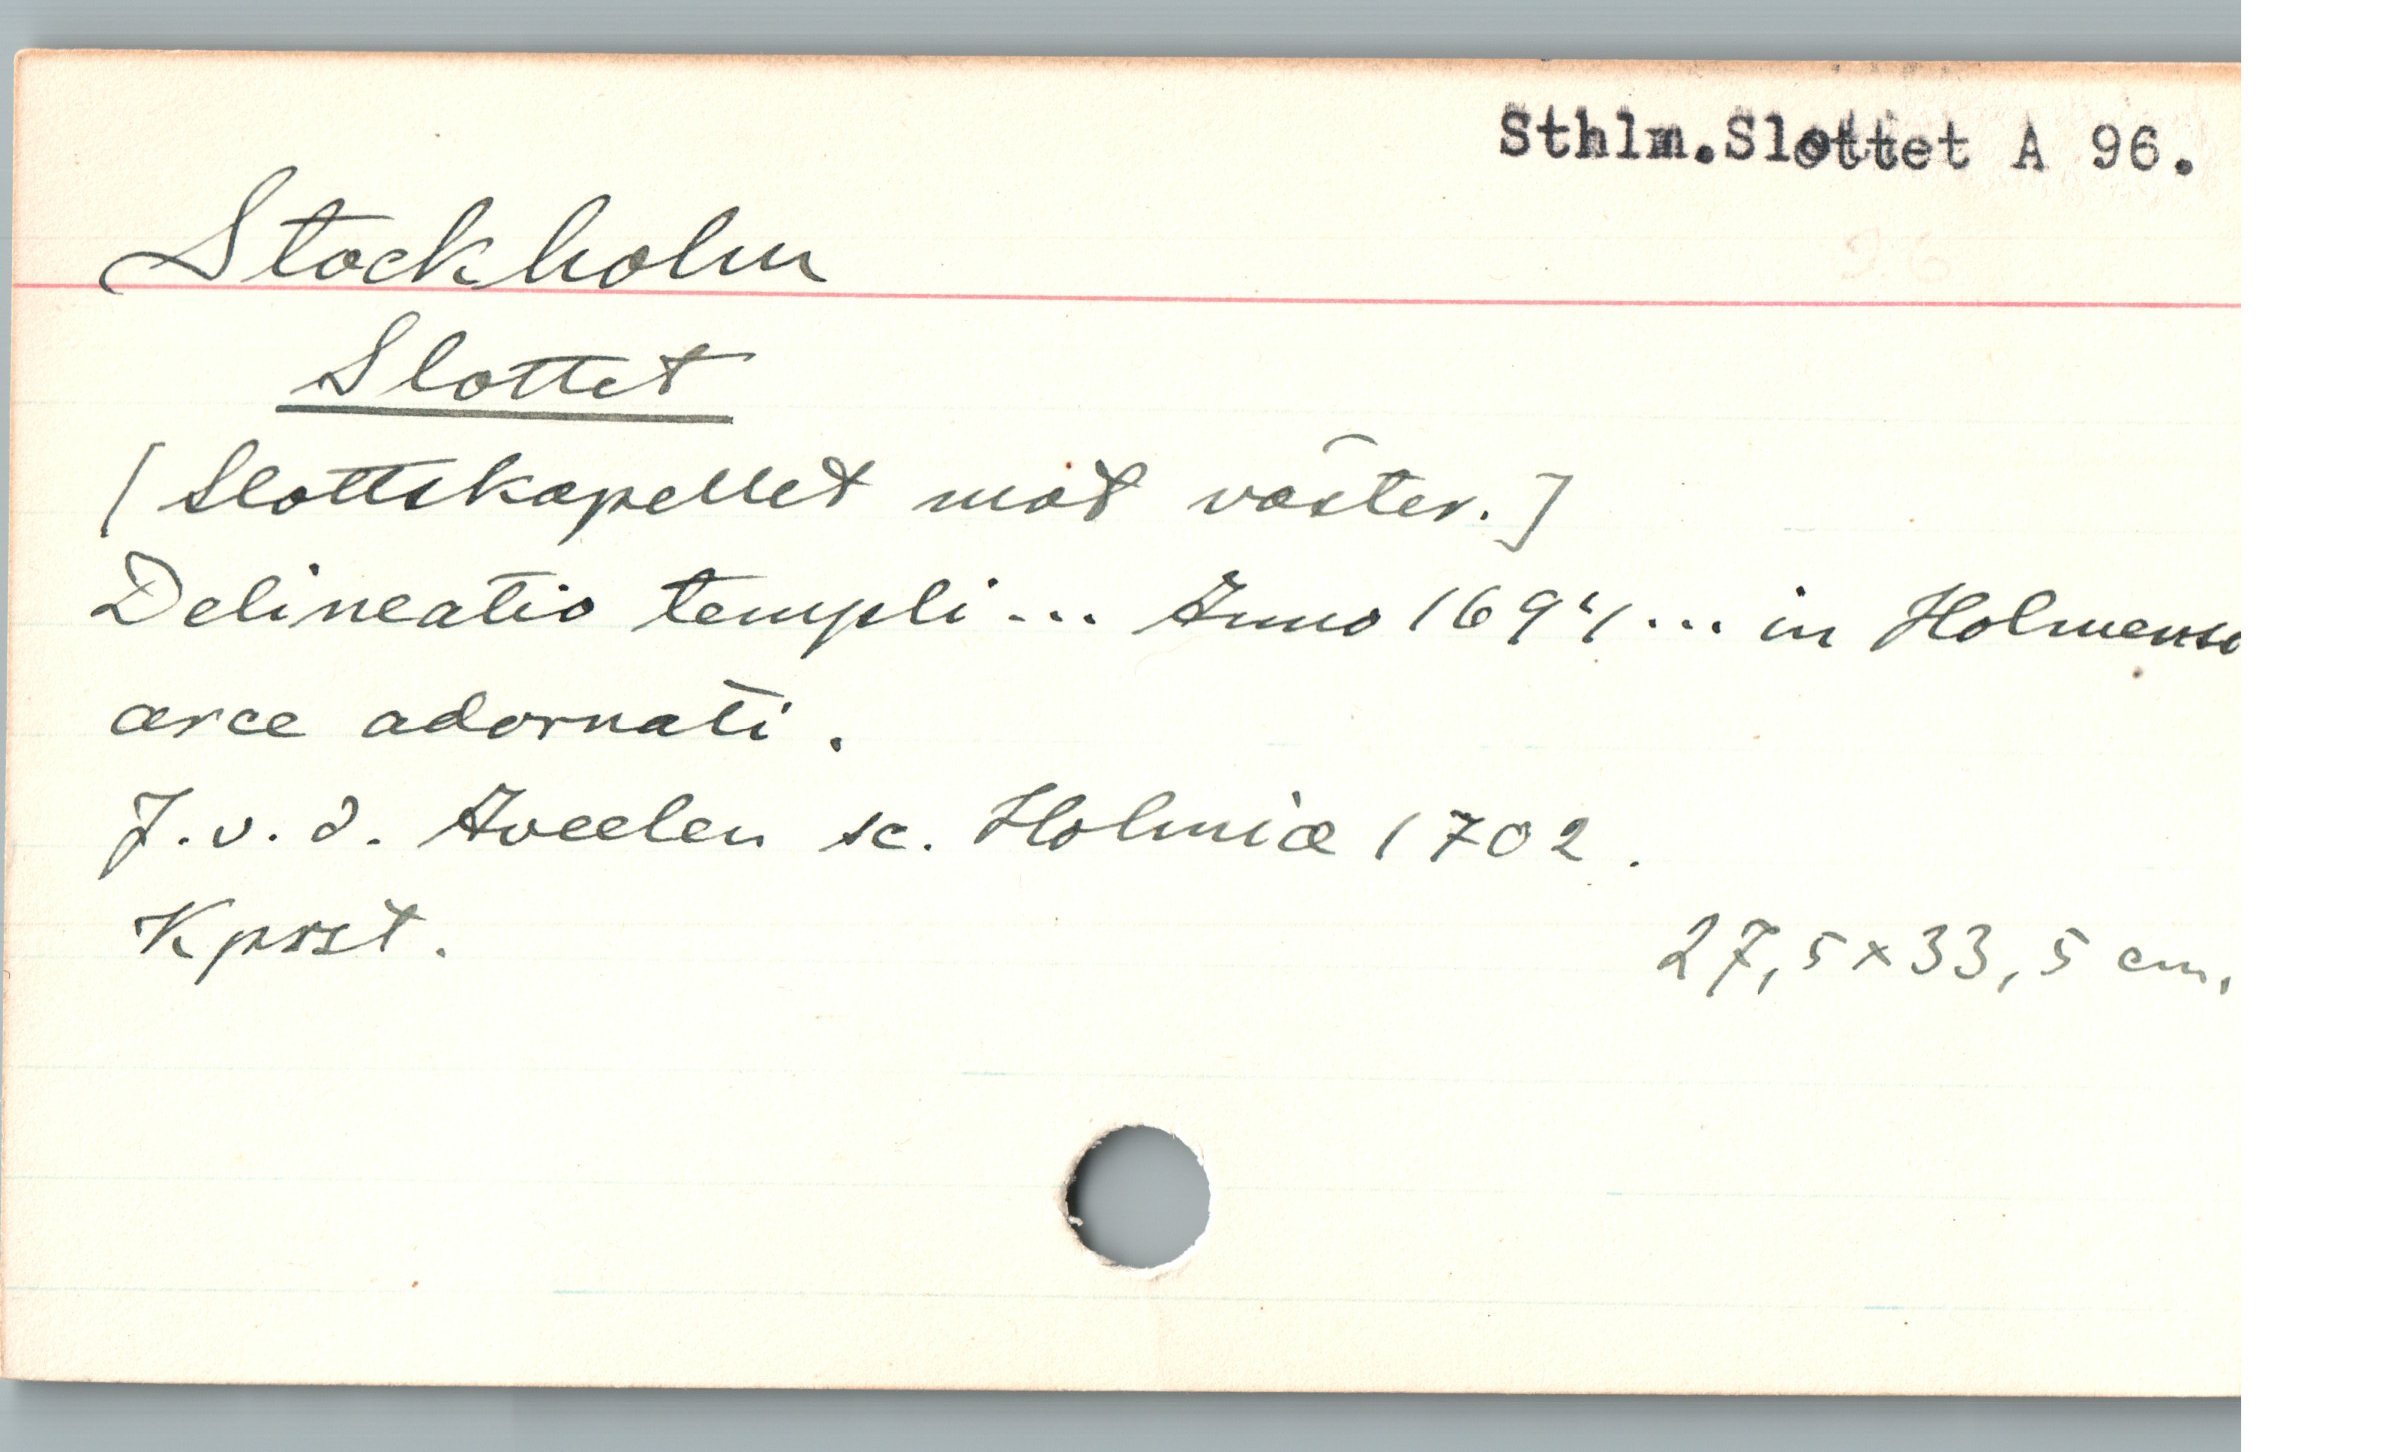 Sthlm.Slottet A 96.
96
Stockholm
Slottet
[Slottskapellet mot väster.]
Delineatio templi... Anno 1694... in Holmense
arce adornati.
J. v. d. Aveelen sc. Holmiæ 1702.
Kprst. 27,5 x 33,5 cm.